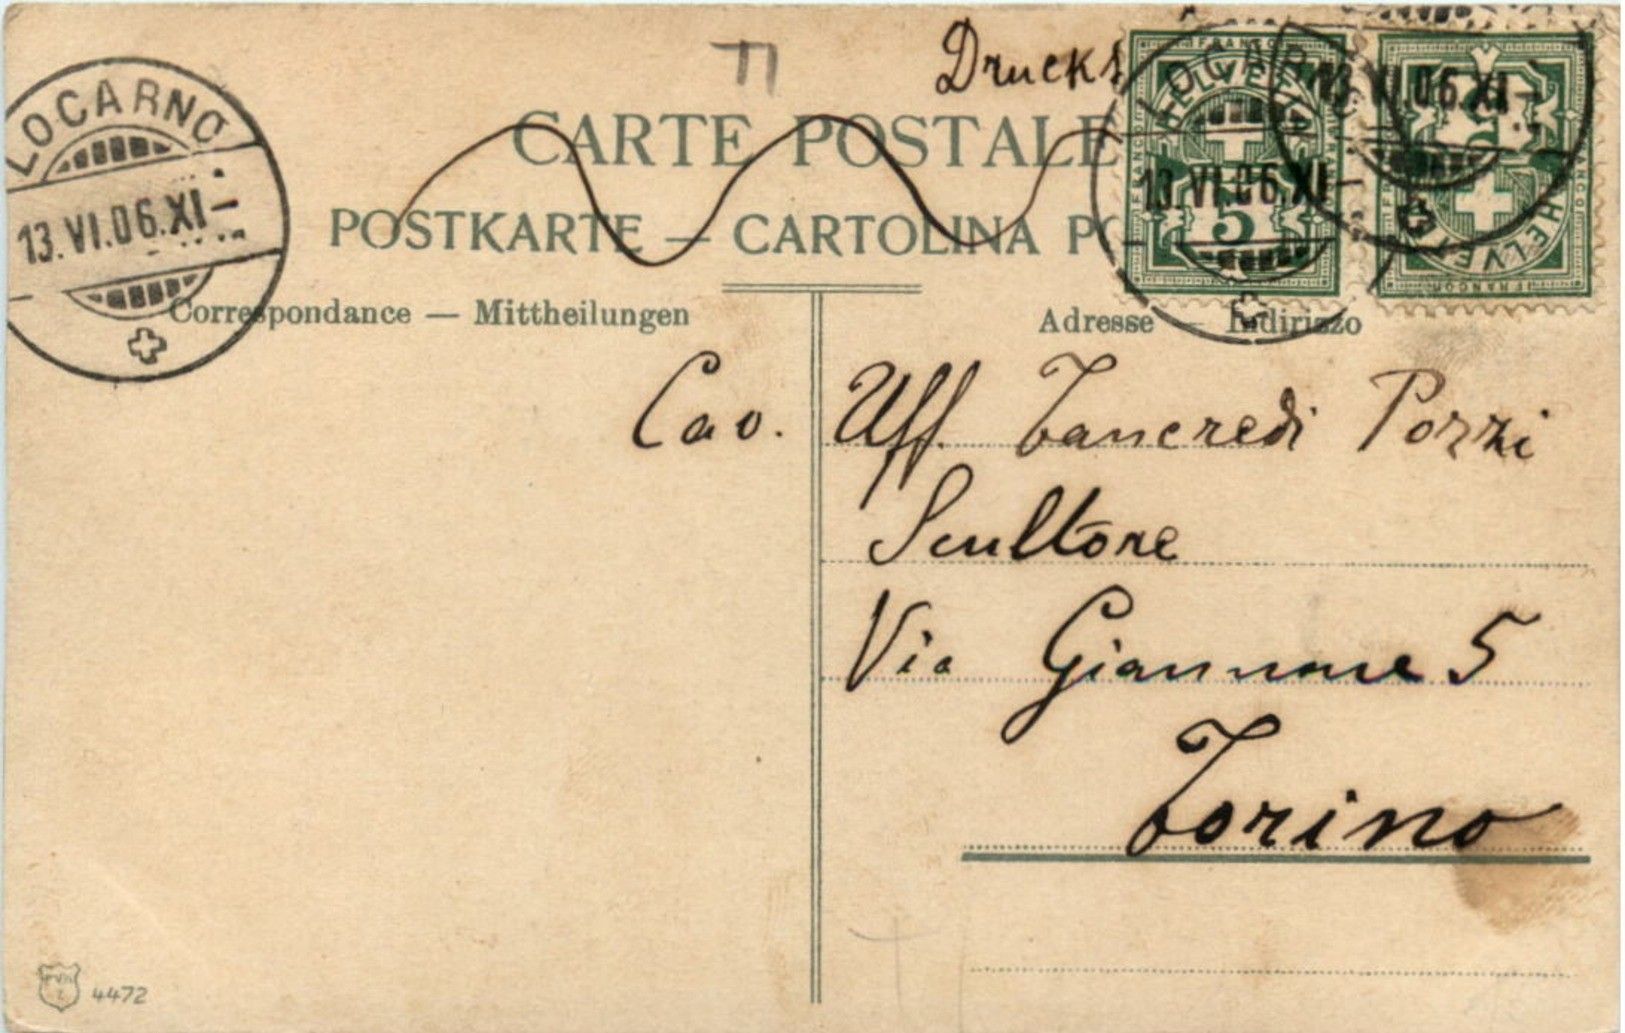 LOCARNO
13.VI.06.XI–
Drucks
FRANCO
HELVETIA
5
LOCARNO
13.VI.06.XI–
FRANCO
HELVETIA
5
13.VI.06.XI–
CARTE POSTALE
POSTKARTE — CARTOLINA PO
Correspondance — Mittheilungen
Adresse — Indirizzo
Cav. Uff. Tancredi Pozzi
Scultore
Via Giannone 5
Torino
4472